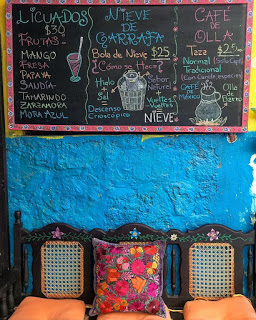 LICUADOS
$30
FRUTAS:
MANGO
FRESA
PAPAYA
SANDÍA
TAMARINDO
ZARZAMORA
MORA AZUL
NIEVE
DE
GARRAFA
Bola de Nieve $25
¿Cómo se Hace?
Hielo
+
Sal
Descenso
Crioscópico
Sabor
Natural
+
Vueltas
Vueltas
NIEVE
CAFÉ
DE
OLLA
Taza $25
Normal (Solo Café)
Tradicional
(Con Canela, especias)
CAFÉ
DE
MÉXICO
Olla
de
Barro